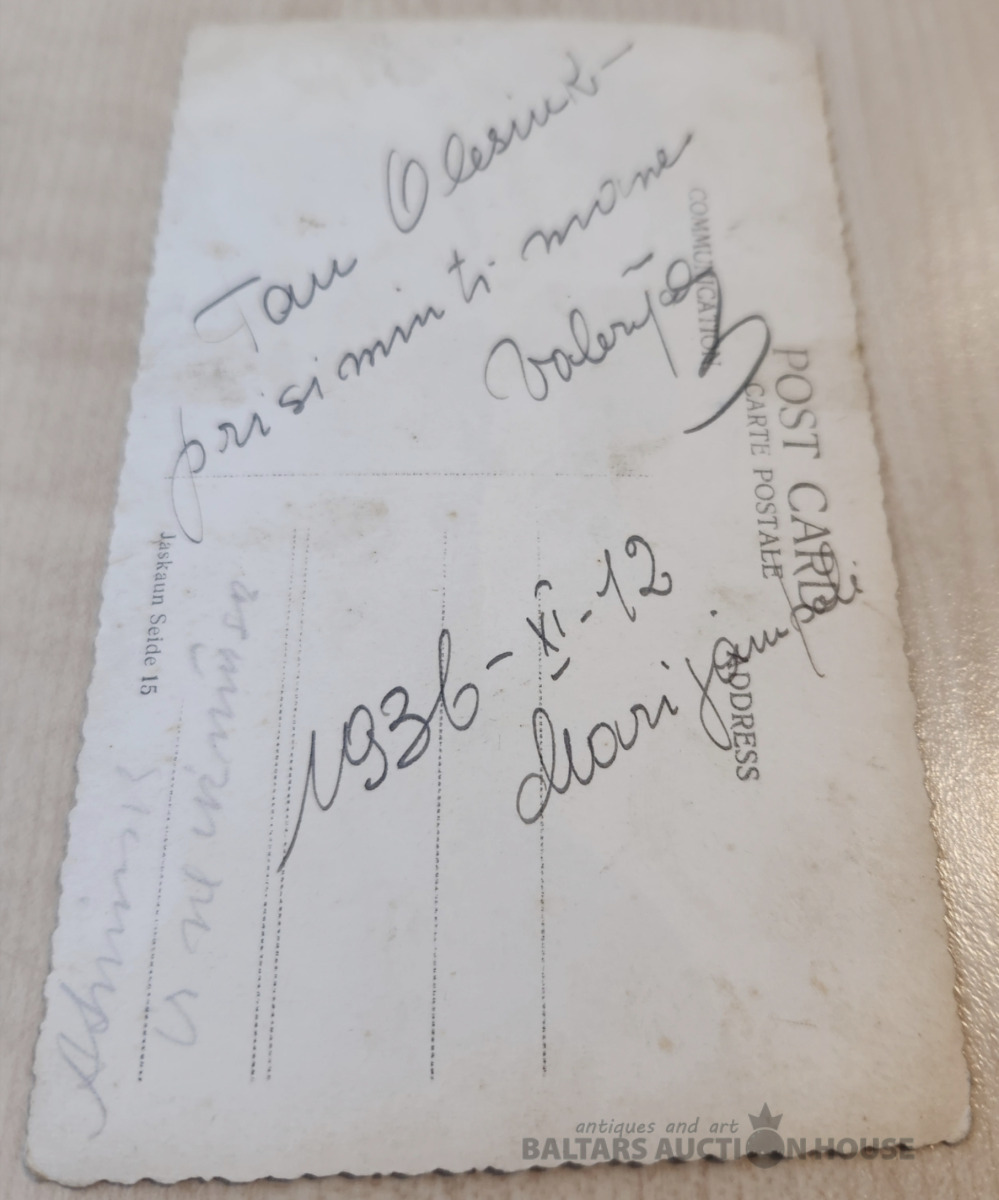 Tau Olesiuk-
prisiminti mane
Valerija
1936-XI-12
POST CARD
CARTE POSTALE
COMMUNICATION
ADDRESS
Jaskaun Seide 15
antiques and art
BALTARS AUCTION HOUSE